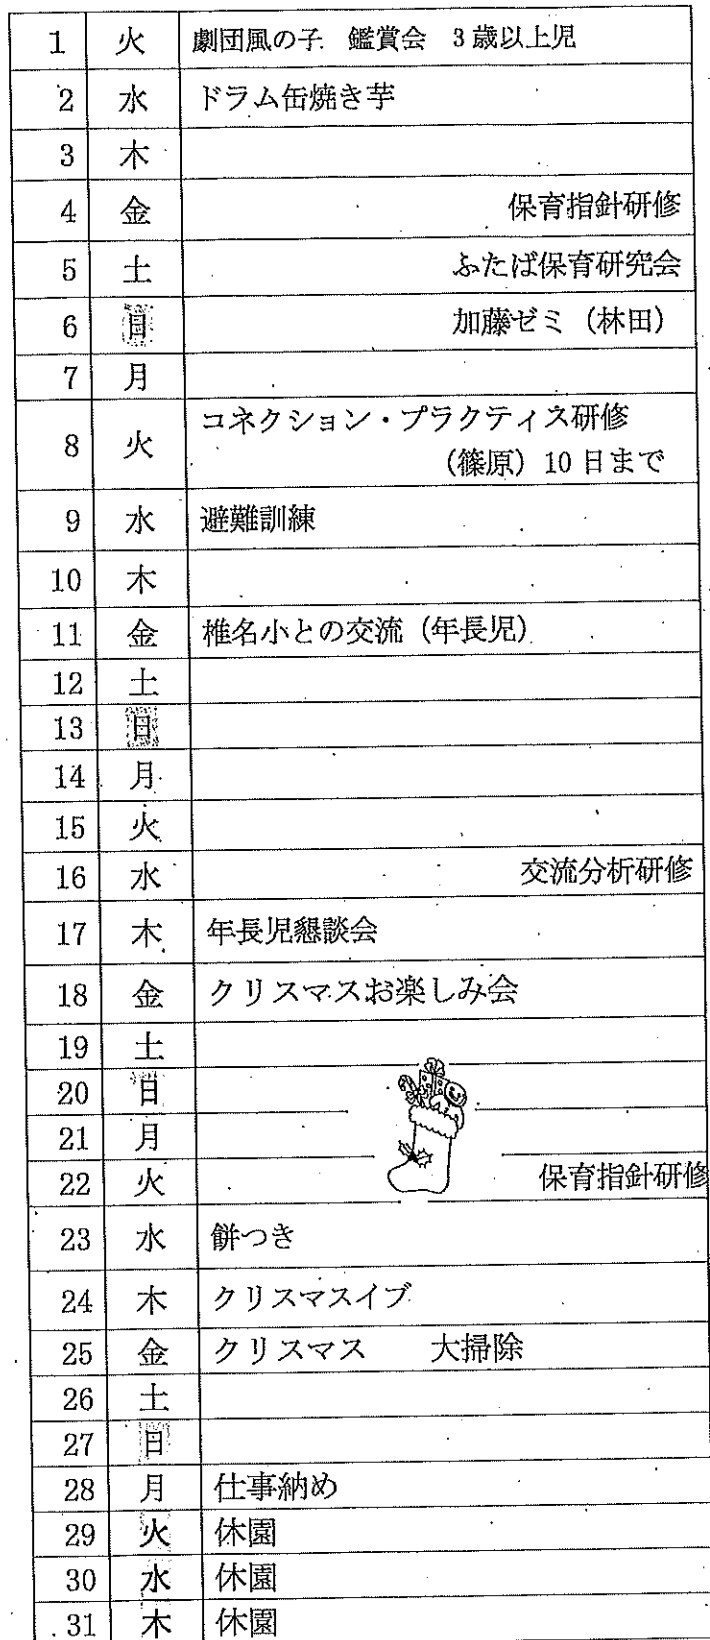 1 火 劇団風の子 鑑賞会 3歳以上児
2 水 ドラム缶焼き芋
3 木
4 金 保育指針研修
5 土 ふたば保育研究会
6 日 加藤ゼミ（林田）
7 月
8 火 コネクション・プラクティス研修
（篠原）10日まで
9 水 避難訓練
10 木
11 金 椎名小との交流（年長児）
12 土
13 日
14 月
15 火
16 水 交流分析研修
17 木 年長児懇談会
18 金 クリスマスお楽しみ会
19 土
20 日
21 月
22 火 保育指針研修
23 水 餅つき
24 木 クリスマスイブ
25 金 クリスマス 大掃除
26 土
27 日
28 月 仕事納め
29 火 休園
30 水 休園
31 木 休園